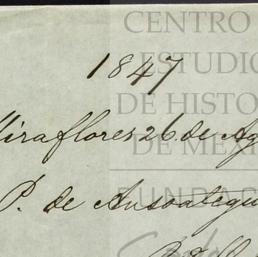 CENTRO
ESTUDIO
DE HISTO
DE MÉXI
FUNDAC
1847
Miraflores 26 de Ag
P. de Ansoategui